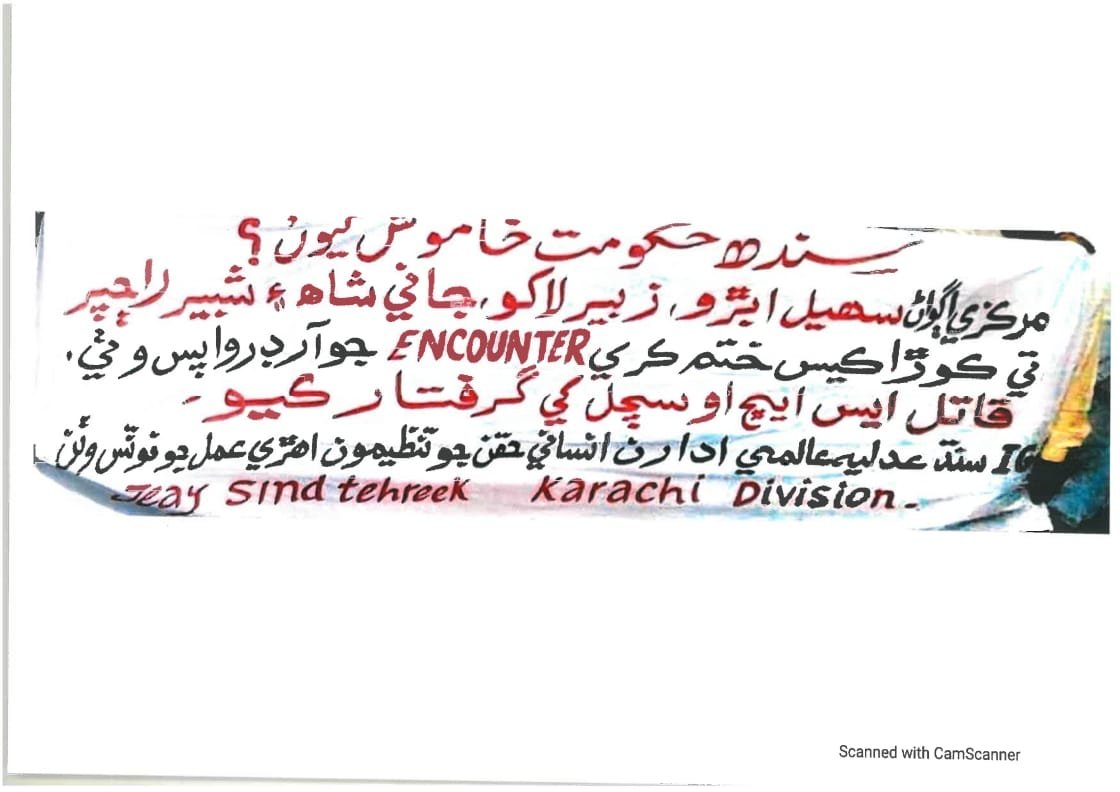 سنڌ حڪومت خاموش ڪيون ؟
مرڪزي اڳواڻ سهيل ابڙو، زبير لاکو، جاني شاھ ۽ شبير راڄپر
تي ڪوڙا ڪيس ختم ڪري ENCOUNTER جو آرڊر واپس وٺي.
قاتل ايس ايڇ او سچل کي گرفتار ڪيو -
IG سنڌ عدليه عالمي ادارن انساني حقن جو تنظيمون اهڙي عمل جو نوٽس وٺن
Jeay Sind tehreek Karachi Division -
Scanned with CamScanner